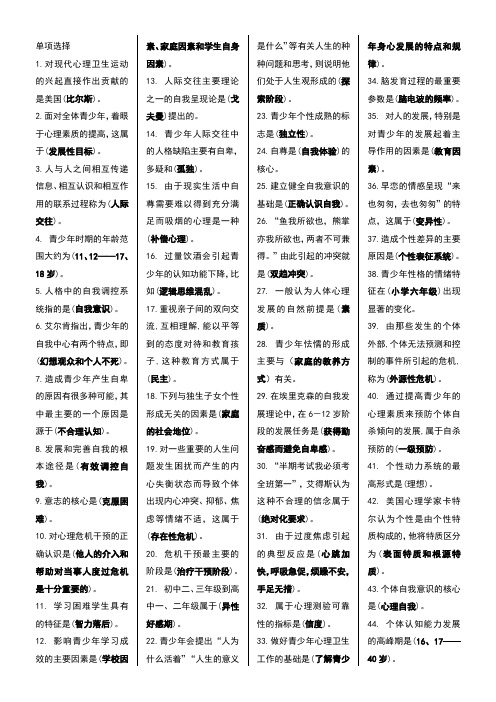 单项选择
1.对现代心理卫生运动
的兴起直接作出贡献的
是美国(比尔斯)。
2.面对全体青少年,着眼
于心理素质的提高,这属
于(发展性目标)。
3.人与人之间相互传递
信息、相互认识和相互作
用的联系过程称为(人际
交往)。
4. 青少年时期的年龄范
围大约为(11、12——17、
18岁)。
5.人格中的自我调控系
统指的是(自我意识)。
6.艾尔肯指出,青少年的
自我中心有两个特点,即
(幻想观众和个人不死)。
7.造成青少年产生自卑
的原因有很多种可能,其
中最主要的一个原因是
源于(不合理认知)。
8.发展和完善自我的根
本途径是(有效调控自
我)。
9.意志的核心是(克服困
难)。
10.对心理危机干预的正
确认识是(他人的介入和
帮助对当事人度过危机
是十分重要的)。
11. 学习困难学生具有
的特征是(智力落后)。
12. 影响青少年学习成
效的主要因素是(学校因
素、家庭因素和学生自身
因素)。
13. 人际交往主要理论
之一的自我呈现论是(戈
夫曼)提出的。
14. 青少年人际交往中
的人格缺陷主要有自卑,
多疑和(孤独)。
15. 由于现实生活中自
尊需要难以得到充分满
足而吸烟的心理是一种
(补偿心理)。
16. 过量饮酒会引起青
少年的认知功能下降,比
如(逻辑思维混乱)。
17.重视亲子间的双向交
流,互相理解,能以平等
到的态度对待和教育孩
子,这种教育方式属于
(民主)。
18.下列与独生子女个性
形成无关的因素是(家庭
的社会地位)。
19.对一些重要的人生问
题发生困扰而产生的内
心失衡状态而导致个体
出现内心冲突、抑郁、焦
虑等情绪不适, 这属于
(存在性危机)。
20. 危机干预最主要的
阶段是(治疗干预阶段)。
21. 初中二、三年级到高
中一、二年级属于(异性
好感期)。
22.青少年会提出“人为
什么活着”“人生的意义
是什么”等有关人生的种
种问题和思考,则说明他
们处于人生观形成的(探
索阶段)。
23.青少年个性成熟的标
志是(独立性)。
24.自尊是(自我体验)的
核心。
25.建立健全自我意识的
基础是(正确认识自我)。
26. “鱼我所欲也, 熊掌
亦我所欲也,两者不可兼
得。”由此引起的冲突就
是(双趋冲突)。
27. 一般认为人体心理
发展的自然前提是(素
质)。
28. 青少年怯懦的形成
主要与（家庭的教养方
式）有关。
29.在埃里克森的自我发
展理论中,在6-12岁阶
段的发展任务是(获得勤
奋感而避免自卑感)。
30.“半期考试我必须考
全班第一”,艾得斯认为
这种不合理的信念属于
(绝对化要求)。
31. 由于过度焦虑引起
的典型反应是(心跳加
快,呼吸急促,烦躁不安,
手足无措)。
32. 属于心理测验可靠
性的指标是(信度)。
33.做好青少年心理卫生
工作的基础是(了解青少
年身心发展的特点和规
律)。
34.脑发育过程的最重要
参数是(脑电波的频率)。
35. 对人的发展,特别是
对青少年的发展起着主
导作用的因素是(教育因
素)。
36.早恋的情感呈现“来
也匆匆，去也匆匆”的特
点, 这属于(变异性)。
37.造成个性差异的主要
原因是(个性表征系统)。
38.青少年性格的情绪特
征在(小学六年级)出现
显著的变化。
39. 由那些发生的个体
外部,个体无法预测和控
制的事件所引起的危机,
称为(外源性危机)。
40. 通过提高青少年的
心理素质来预防个体自
杀倾向的发展,属于自杀
预防的(一级预防)。
41. 个性动力系统的最
高形式是(理想)。
42. 美国心理学家卡特
尔认为个性是由个性特
质构成的,他将特质区分
为(表面特质和根源特
质)。
43.个体自我意识的核心
是(心理自我)。
44. 个体认知能力发展
的高峰期是(16、17——
40岁)。